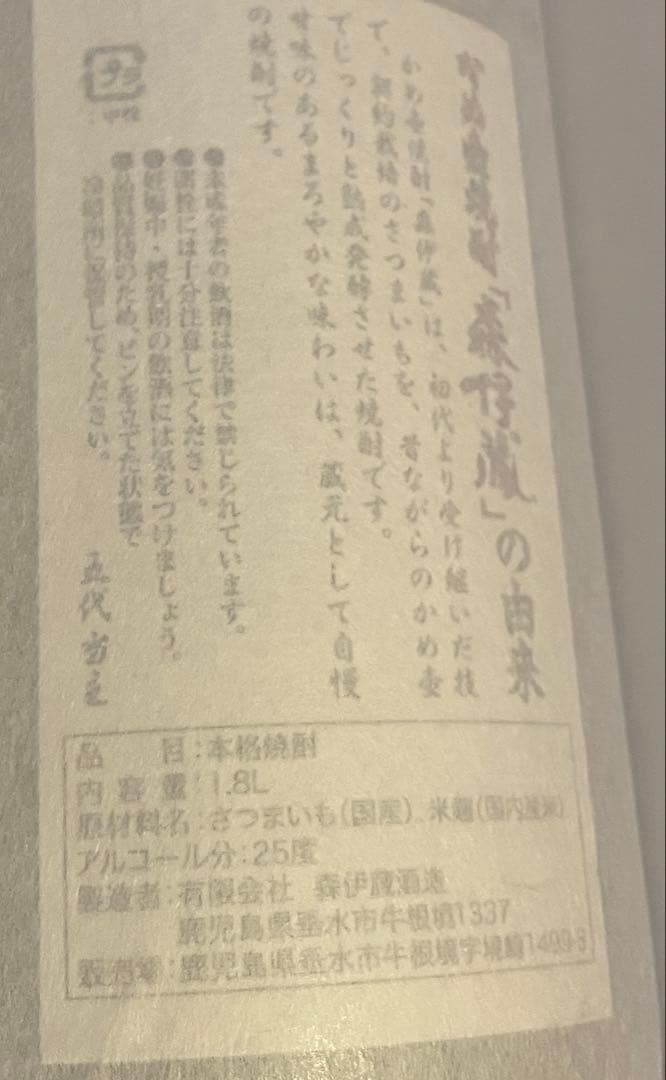 かめ壺焼酎「森伊蔵」の由来
かめ壺焼酎「森伊蔵」は、初代より受け継いだ技
で、契約栽培のさつまいもを、昔ながらのかめ壺
でじっくりと熟成発酵させた焼酎です。
甘味のあるまろやかな味わいは、蔵元として自慢
の焼酎です。
●未成年者の飲酒は法律で禁じられています。
●開栓には十分注意してください。
●妊娠中・授乳期の飲酒には気をつけましょう。
●品質保持のため、ビンを立てた状態で
冷暗所に保管してください。
五代当主
品目:本格焼酎
内容量:1.8L
原材料名:さつまいも(国産)、米麹(国内産米)
アルコール分:25度
製造者:有限会社 森伊蔵酒造
鹿児島県垂水市牛根境1337
製造場:鹿児島県垂水市牛根境字境